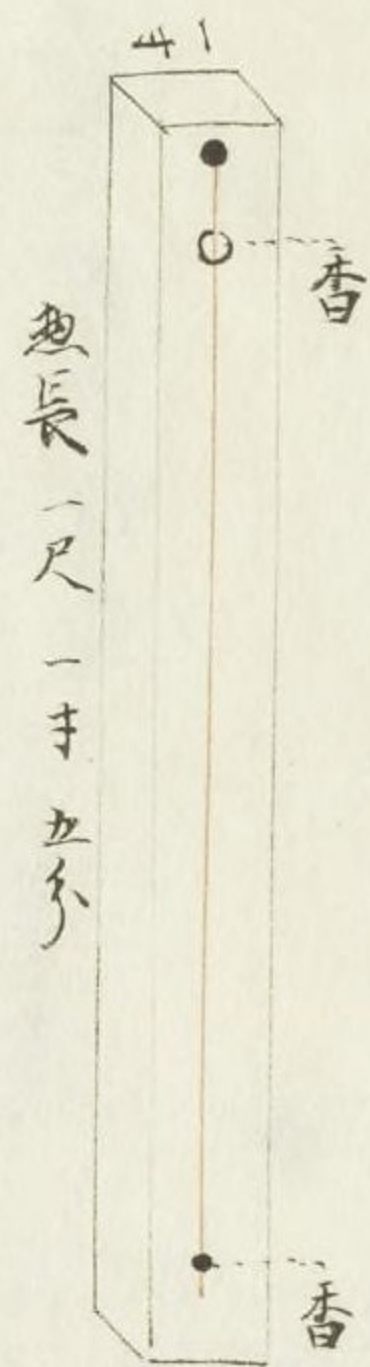 一寸
香
惣長一尺一寸五分
香